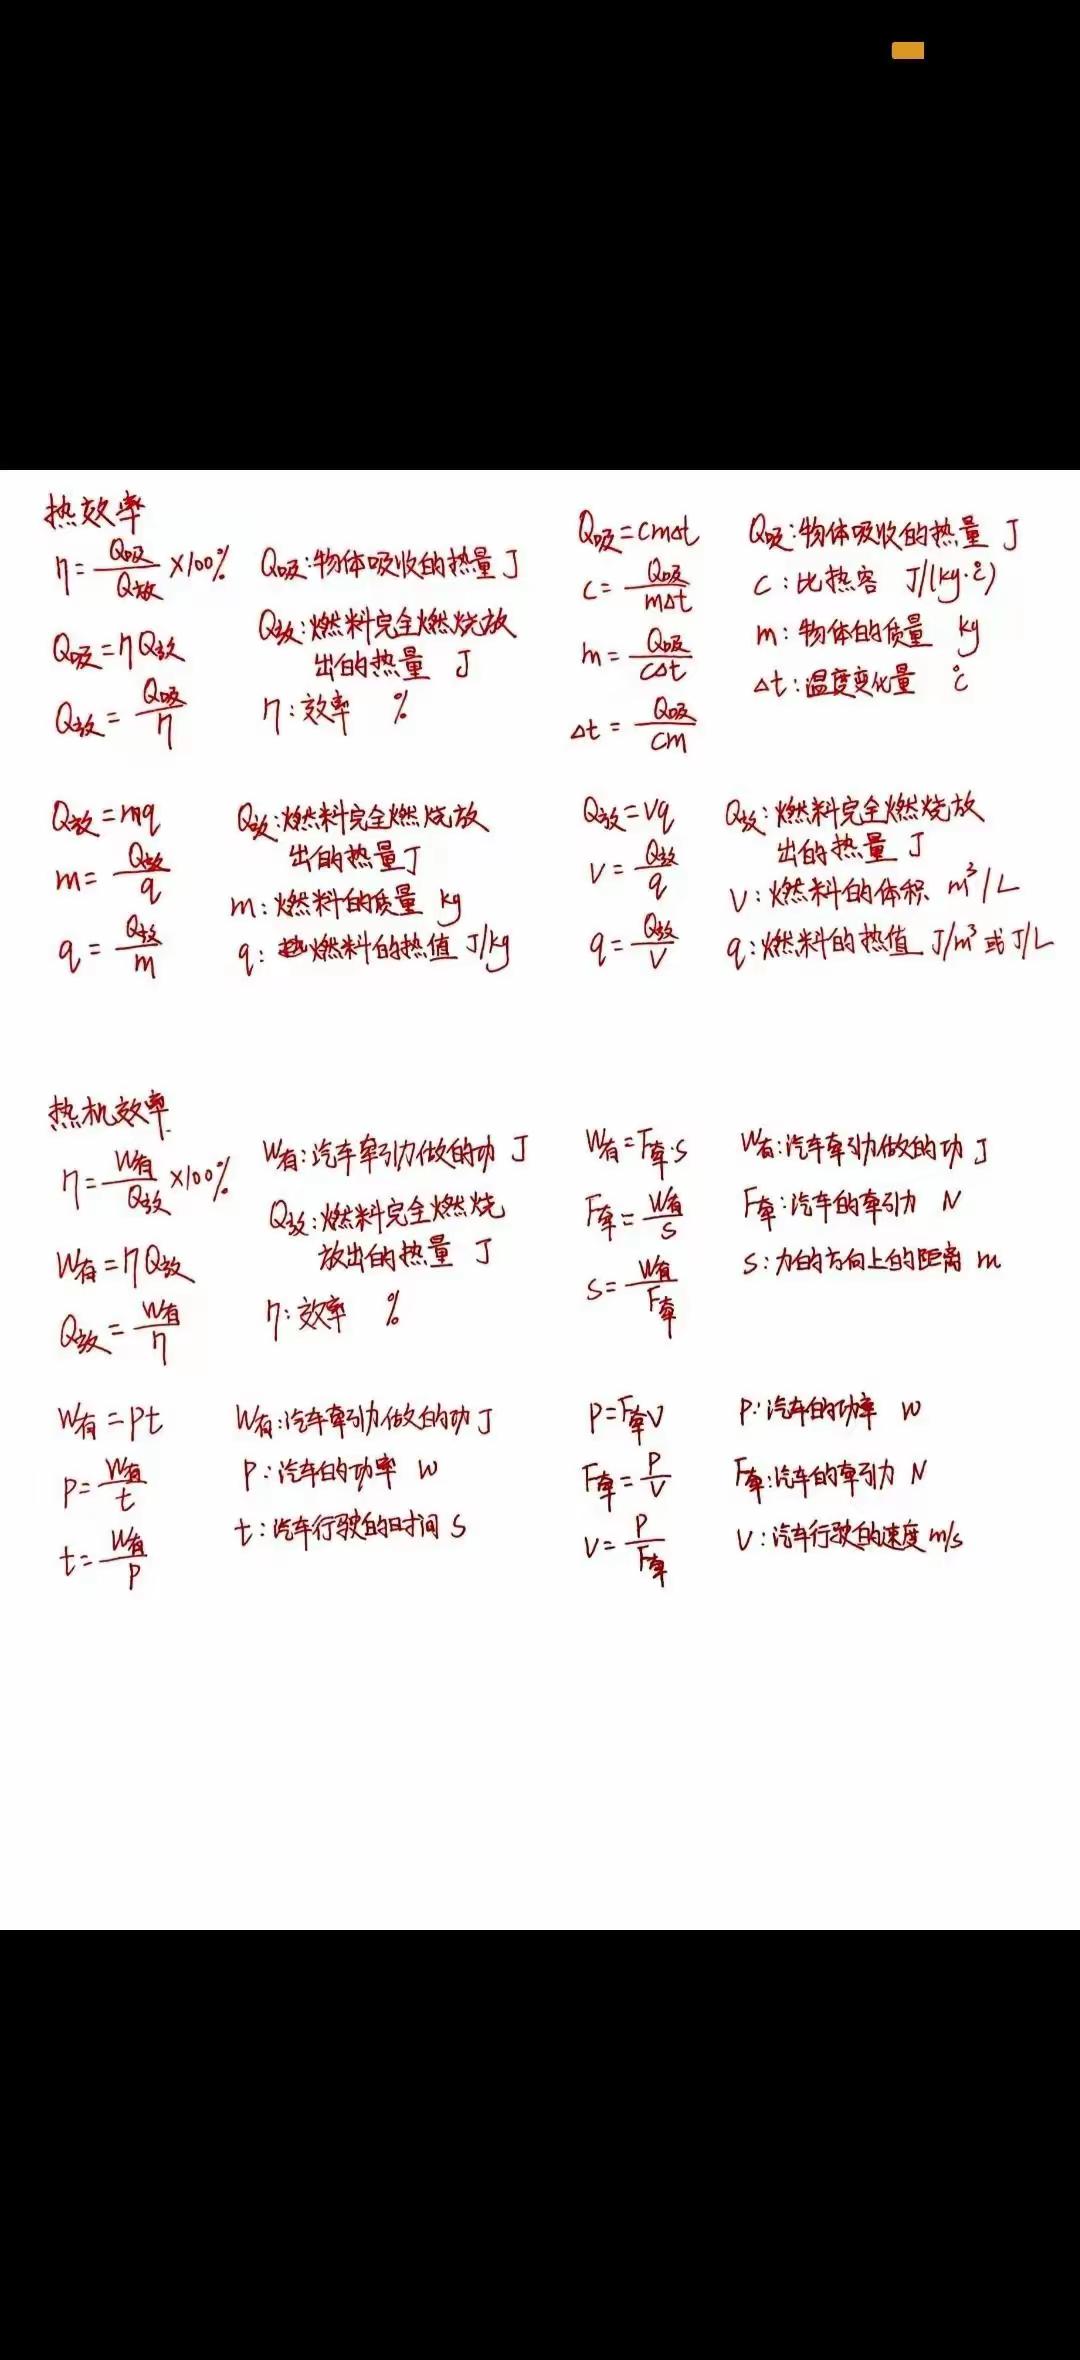 热效率
η=Q吸/Q放×100%
Q吸=ηQ放
Q放=Q吸/η
Q吸:物体吸收的热量 J
Q放:燃料完全燃烧放
出的热量 J
η:效率 %
Q吸=cmΔt
c=Q吸/mΔt
m=Q吸/cΔt
Δt=Q吸/cm
Q吸:物体吸收的热量 J
c:比热容 J/(kg·℃)
m:物体的质量 kg
Δt:温度变化量 ℃
Q放=mq
m=Q放/q
q=Q放/m
Q放:燃料完全燃烧放
出的热量J
m:燃料的质量 kg
q:燃料的热值 J/kg
Q放=Vq
V=Q放/q
q=Q放/V
Q放:燃料完全燃烧放
出的热量 J
V:燃料的体积 m³/L
q:燃料的热值 J/m³或J/L
热机效率
η=W有/Q放×100%
W有=ηQ放
Q放=W有/η
W有:汽车牵引力做的功 J
Q放:燃料完全燃烧
放出的热量 J
η:效率 %
W有=F牵·s
F牵=W有/s
s=W有/F牵
W有:汽车牵引力做的功 J
F牵:汽车的牵引力 N
s:力的方向上的距离 m
W有=Pt
P=W有/t
t=W有/P
W有:汽车牵引力做的功 J
P:汽车的功率 W
t:汽车行驶的时间 s
P=F牵V
F牵=P/V
V=P/F牵
P:汽车的功率 W
F牵:汽车的牵引力 N
V:汽车行驶的速度 m/s